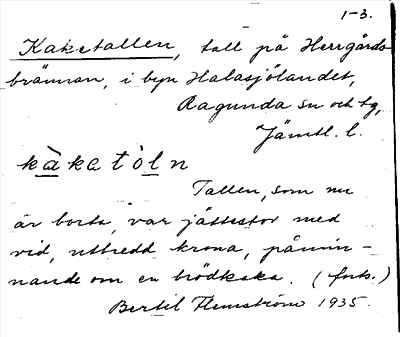 1-3.
Kaketallen, tall på Herrgårds-
brännan, i byn Halasjölandet,
Ragunda sn och tg,
Jämtl. l.
kàkatòln
Tallen, som nu
är borta, var jättestor med
vid, utbredd krona, påmin-
nande om en brödkaka. (forts.)
Bertil Flemström 1935.